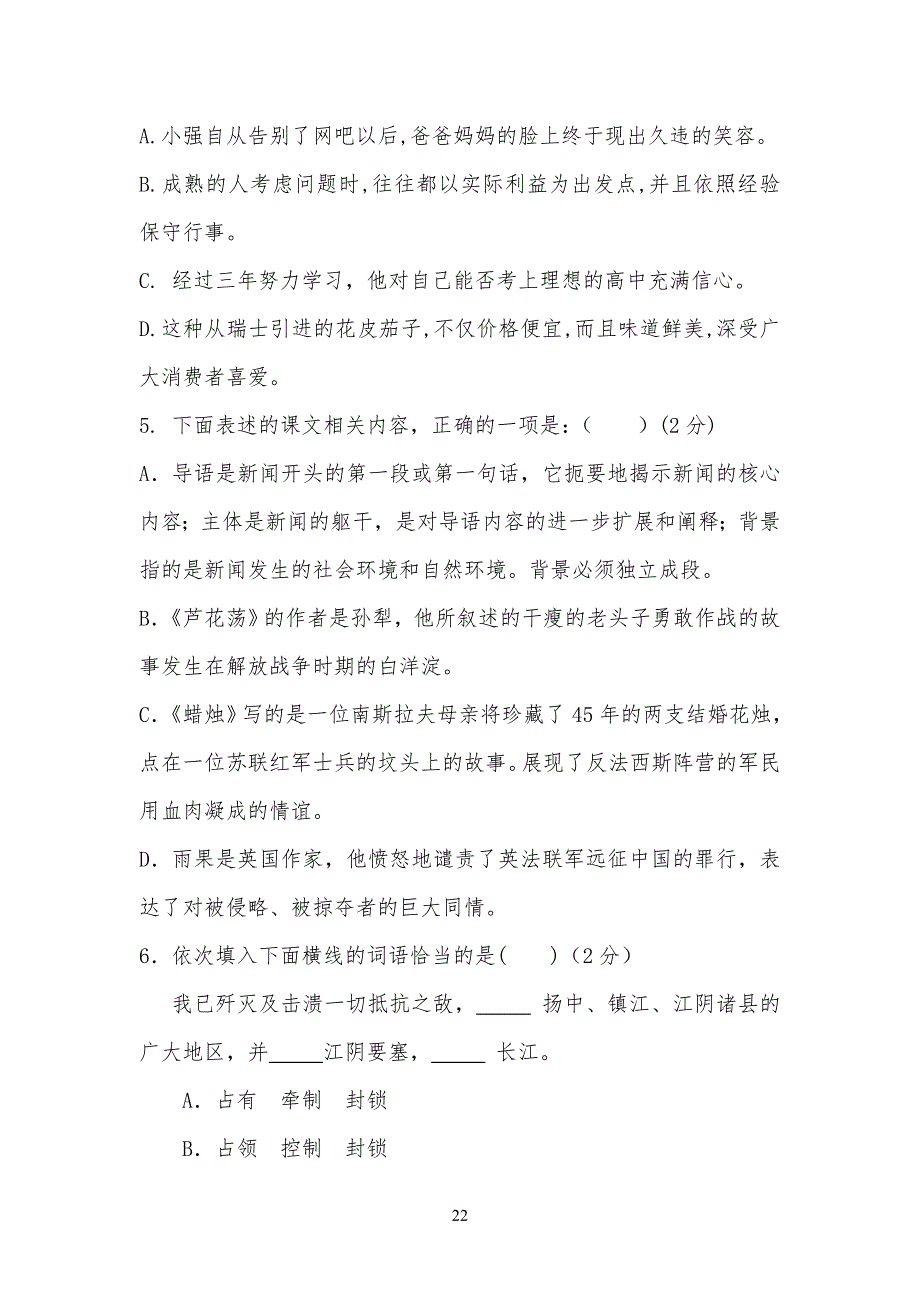 A.小强自从告别了网吧以后,爸爸妈妈的脸上终于现出久违的笑容。
B.成熟的人考虑问题时,往往都以实际利益为出发点,并且依照经验
保守行事。
C. 经过三年努力学习，他对自己能否考上理想的高中充满信心。
D.这种从瑞士引进的花皮茄子,不仅价格便宜,而且味道鲜美,深受广
大消费者喜爱。
5. 下面表述的课文相关内容，正确的一项是：（　　）(2分)
A．导语是新闻开头的第一段或第一句话，它扼要地揭示新闻的核心
内容；主体是新闻的躯干，是对导语内容的进一步扩展和阐释；背景
指的是新闻发生的社会环境和自然环境。背景必须独立成段。
B．《芦花荡》的作者是孙犁，他所叙述的干瘦的老头子勇敢作战的故
事发生在解放战争时期的白洋淀。
C．《蜡烛》写的是一位南斯拉夫母亲将珍藏了 45 年的两支结婚花烛，
点在一位苏联红军士兵的坟头上的故事。展现了反法西斯阵营的军民
用血肉凝成的情谊。
D．雨果是英国作家，他愤怒地谴责了英法联军远征中国的罪行，表
达了对被侵略、被掠夺者的巨大同情。
6．依次填入下面横线的词语恰当的是(　　)（2分）
我已歼灭及击溃一切抵抗之敌，_____ 扬中、镇江、江阴诸县的
广大地区，并_____江阴要塞，_____ 长江。
A．占有　牵制　封锁
B．占领　控制　封锁
22